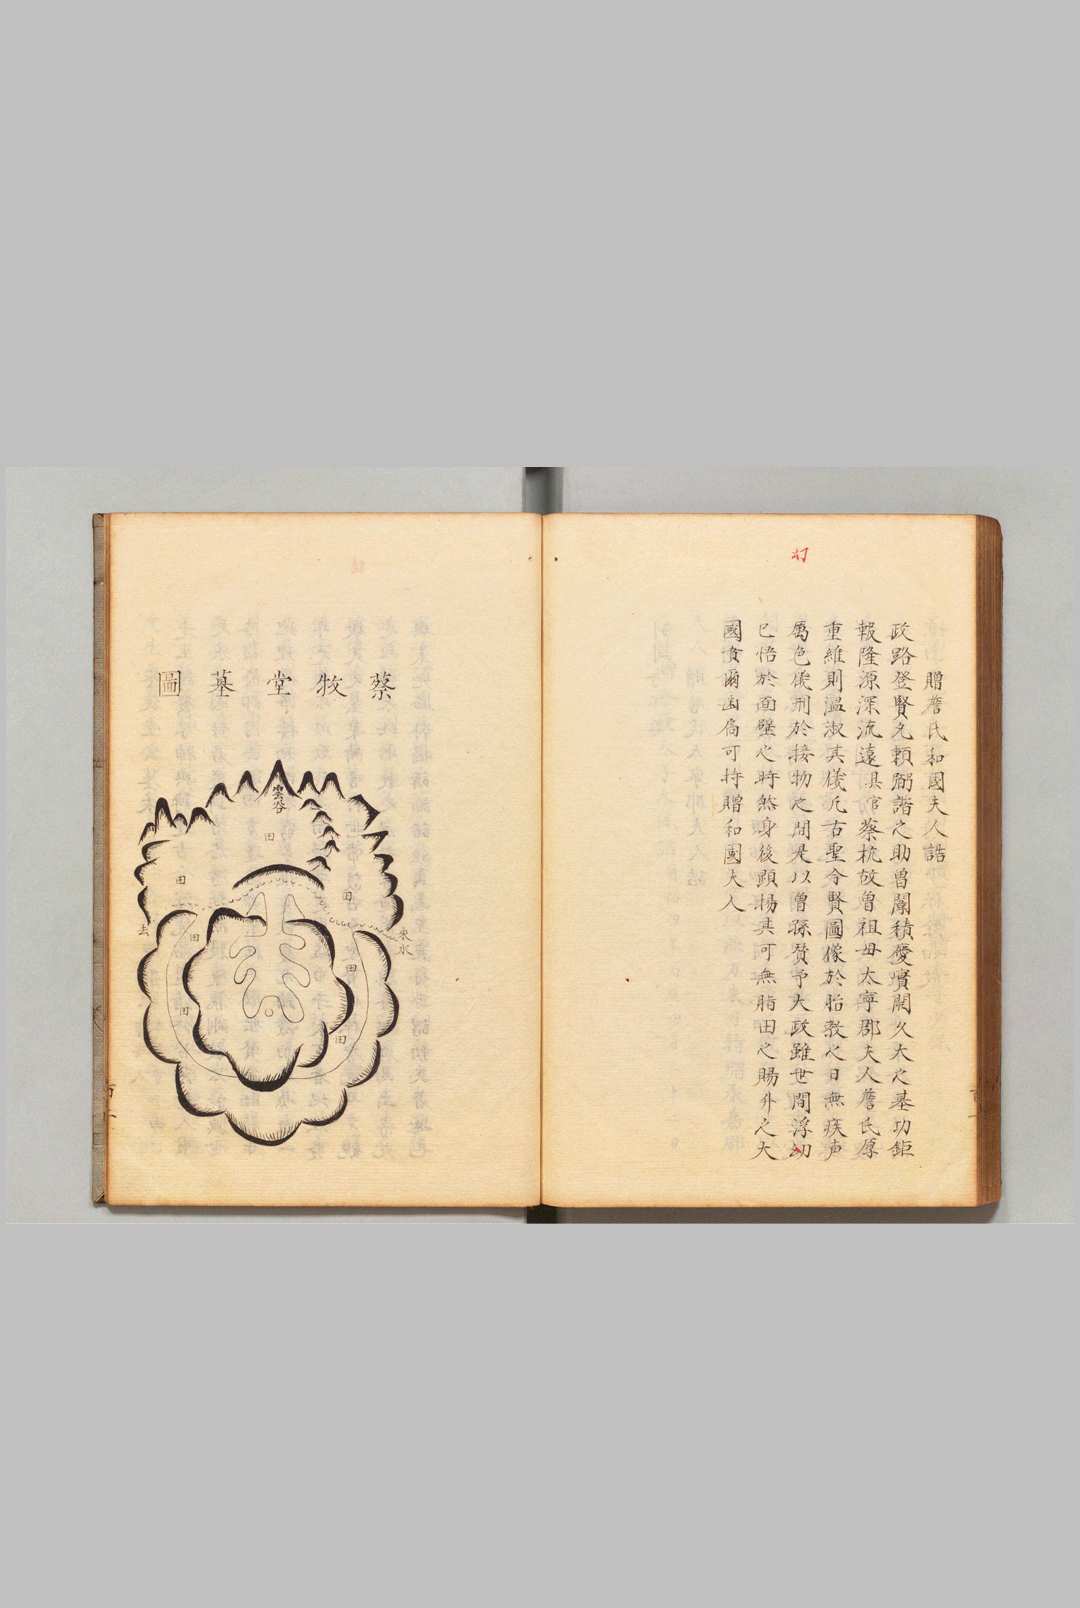 贈詹氏和國夫人誥
政路登賢允賴弼諧之助曾闈積慶壙開久大之基功鉅
報隆源深流遠具官蔡杭故曾祖母太寧郡夫人詹氏厚
重維則溫淑其儀凡古聖今賢圖像於胎教之日無疾声
厲色儀刑於接物之間是以曾孫贊予大政雖世間浮幻
已悟於面壁之時然身後顯揚其可無脂田之賜升之大
國賁爾幽扃可特贈和國夫人
蔡牧堂墓圖
雲谷
田
田
田
田
來水
去
田
田
田